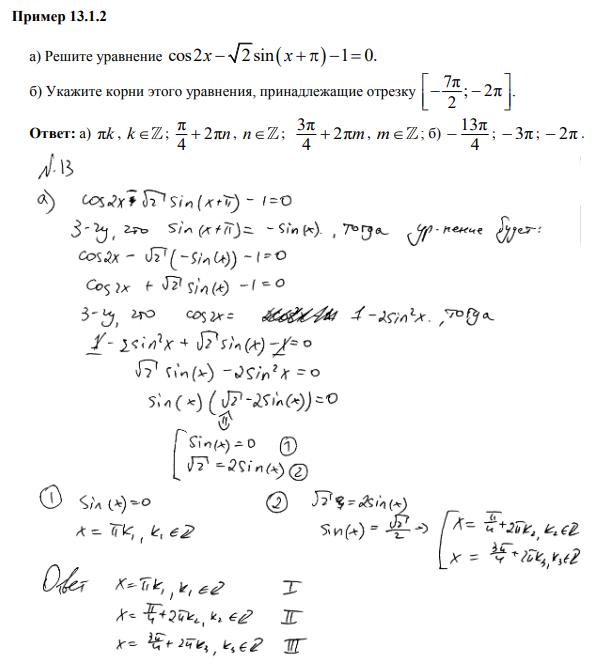 Пример 13.1.2
а) Решите уравнение cos2x − √2 sin(x + π) − 1 = 0.
б) Укажите корни этого уравнения, принадлежащие отрезку [−7π/2; −2π].
Ответ: а) πk, k ∈ ℤ; π/4 + 2πn, n ∈ ℤ; 3π/4 + 2πm, m ∈ ℤ; б) −13π/4; −3π; −2π.
N.13
а) cos2x − √2 sin(x+π) − 1=0
З-чу, что sin(x+π)= −sin(x)., тогда ур-нение будет:
cos2x − √2 (−sin(x)) − 1=0
cos2x + √2 sin(x) − 1=0
З-чу, что cos2x= 1−2sin²x., тогда
1 − 2sin²x + √2 sin(x) − 1=0
√2 sin(x) − 2sin²x = 0
sin(x)(√2 − 2sin(x))=0
⇓
[ sin(x)=0 ①
√2 = 2sin(x) ②
① sin(x)=0 ② √2 = 2sin(x)
x = πk₁, k₁∈Z sin(x) = √2/2 → [ x = π/4 + 2πk₂, k₂∈Z
x = 3π/4 + 2πk₃, k₃∈Z
Ответ x=πk₁, k₁∈Z I
x= π/4 + 2πk₂, k₂∈Z II
x= 3π/4 + 2πk₃, k₃∈Z III